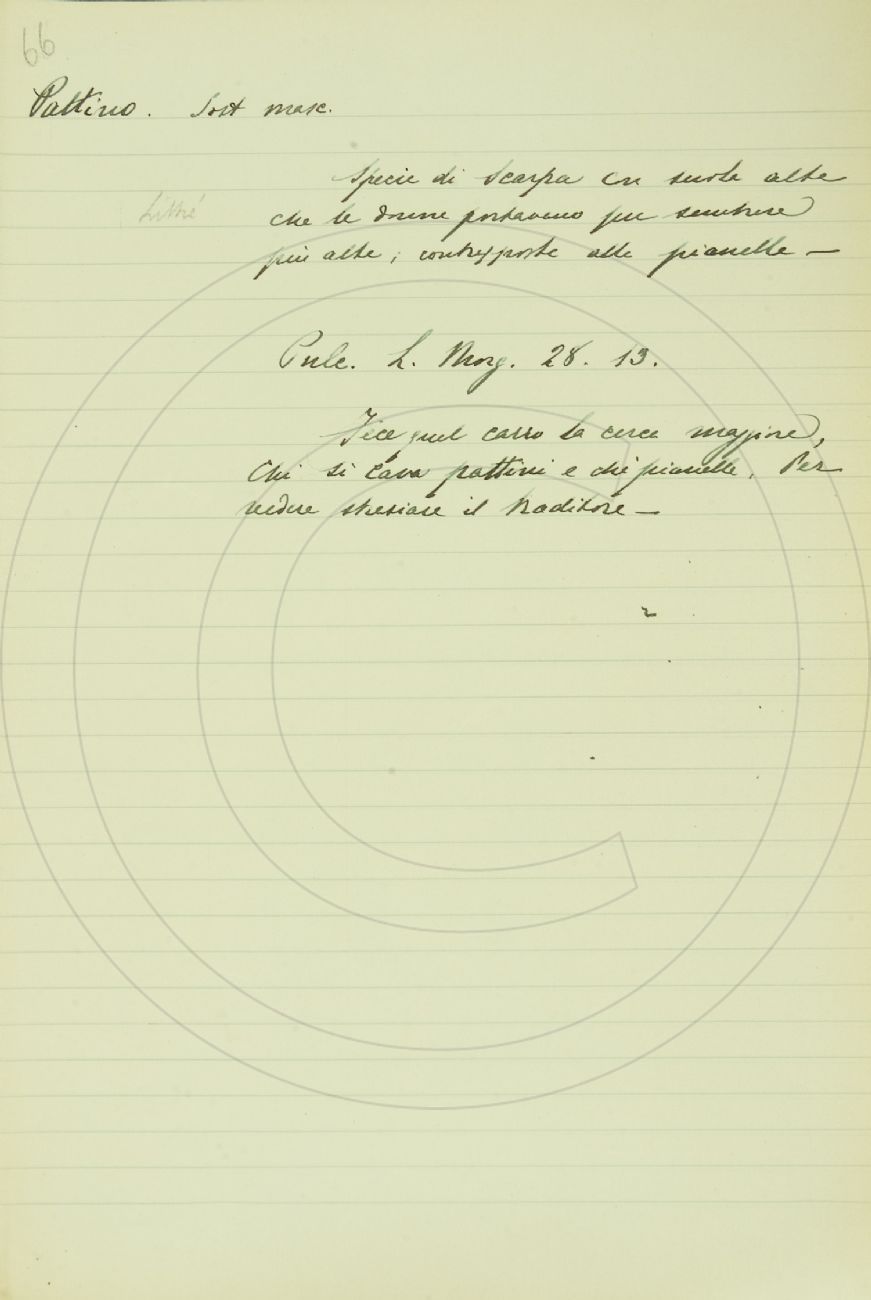 66
Pattino. Sost masc.
Specie di scarpa con suola alta
Littré
che le donne portavano per sembrare
più alte; contrapposte alle pianelle —
Pulc. L. Morg. 28. 13.
Fece quel carro la cerca maggiore,
Chi si cava pattini e chi pianelle, Per
vedere straziare il traditore —